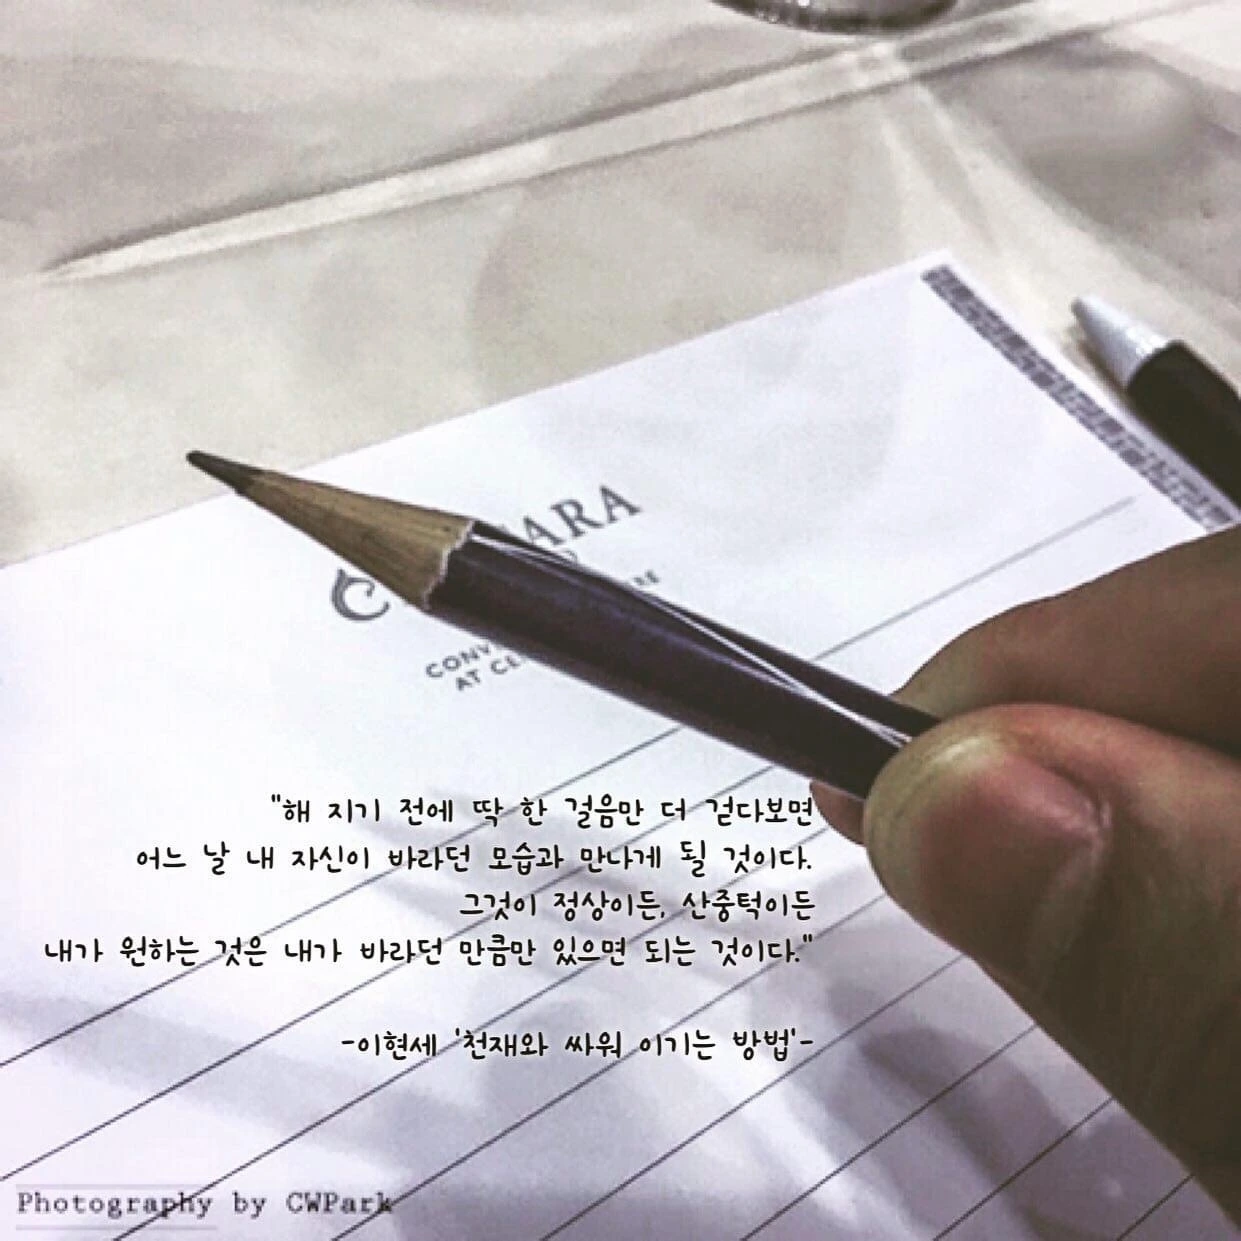 ARA
AT
"해 지기 전에 딱 한 걸음만 더 걷다보면
어느 날 내 자신이 바라던 모습과 만나게 될 것이다.
그것이 정상이든, 산중턱이든
내가 원하는 것은 내가 바라던 만큼만 있으면 되는 것이다."
-이현세 '천재와 싸워 이기는 방법'-
Photography by CWPark